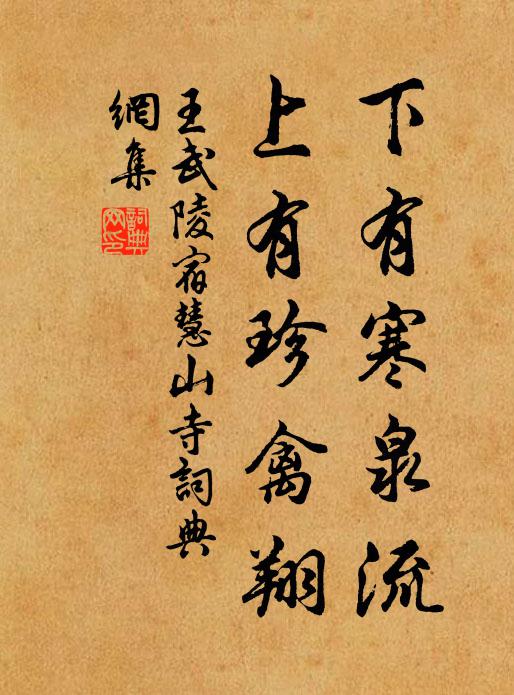 下有寒泉流
上有珍禽翔
王武陵宿慧山寺詞典
網集
詞典
网印